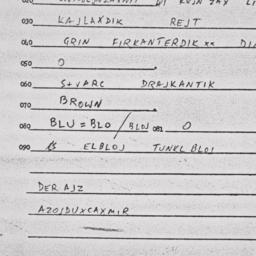 030 KAJLAXDIK REJT
040 GRIN FIRKANTERDIK **
050 O
060 S+VARC DRAJKANTIK
070 BROWN
080 BLU = BLO / BLOJ 081 O
090 ELBLOJ TUNKL BLOJ
DER AJZ
AZOJDUXCAXMIR